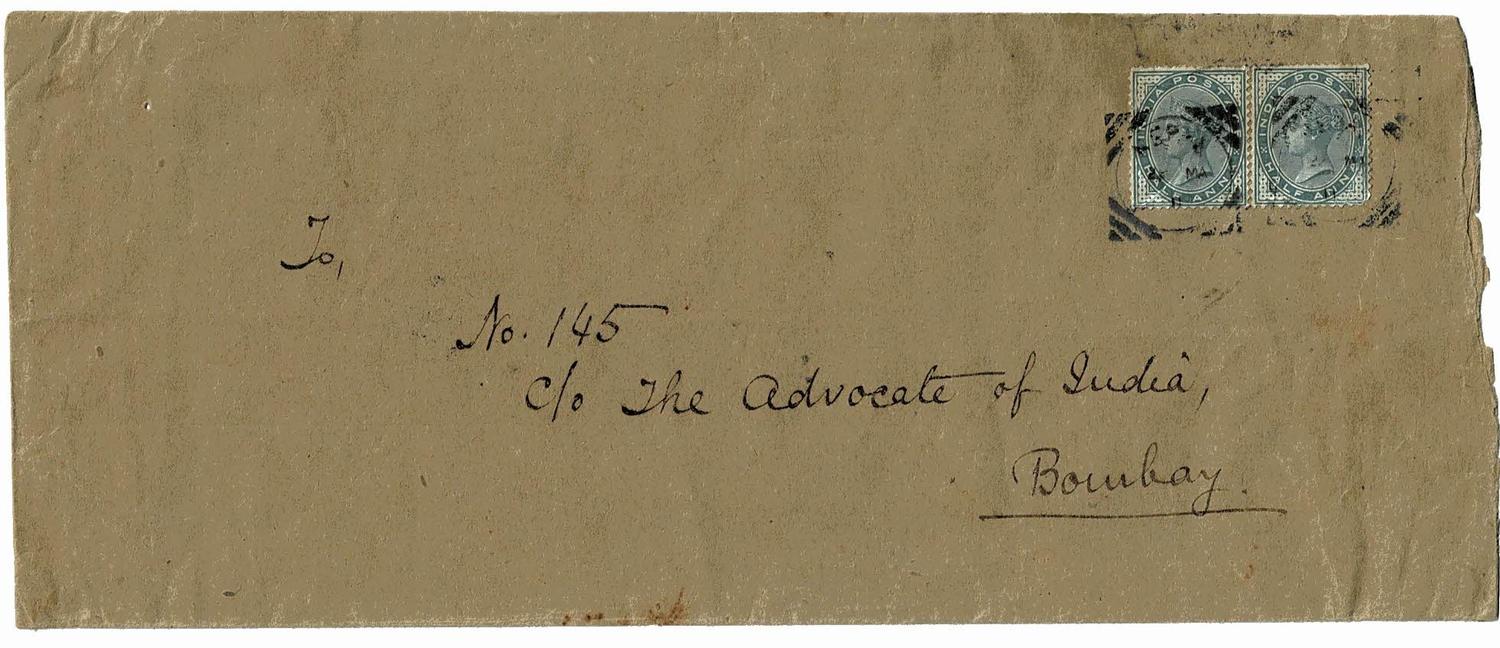 INDIA POSTA INDIA POSTAG
HALF ANNA HALF ANNA
MA
To,
No. 145
c/o The Advocate of India,
Bombay.